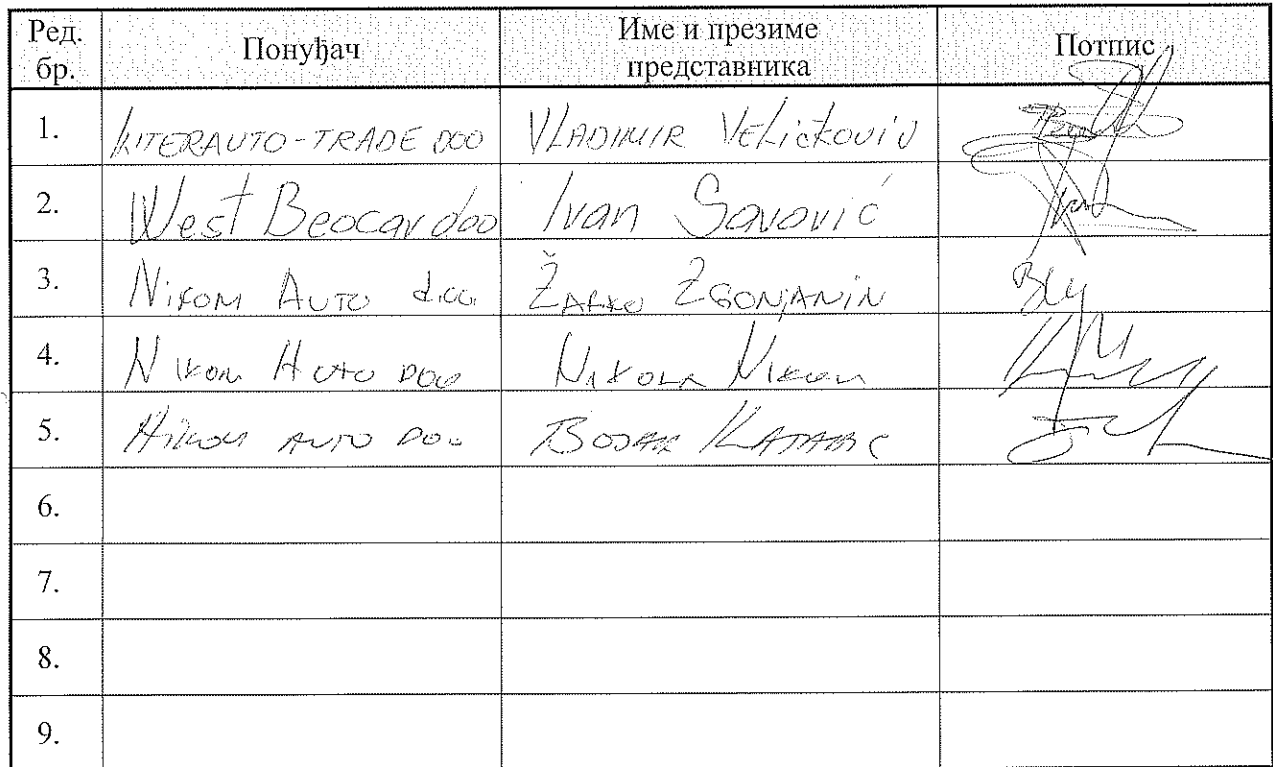 Ред. бр. Понуђач Име и презиме представника Потпис
1. INTERAUTO-TRADE DOO VLADIMIR VELIČKOVIĆ
2. West Beocar doo Ivan Savović
3. NIKOM AUTO d.o.o. ŽARKO ZGONJANIN
4. NIKOM AUTO DOO NIKOLA
5. AUTO DOO
6.
7.
8.
9.